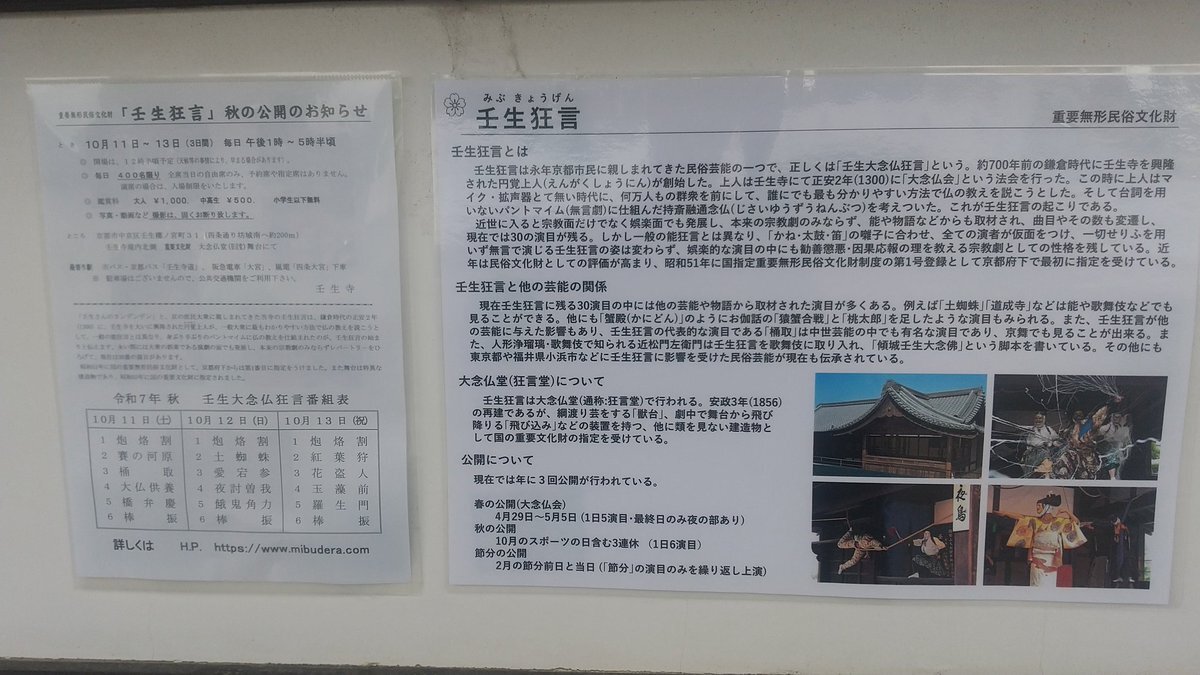 重要無形民俗文化財 「壬生狂言」秋の公開のお知らせ
とき 10月11日～13日(3日間) 毎日 午後1時～5時半頃
◎ 開場は、12時半頃予定
◎ 毎日 400名限り 全席当日の自由席のみ、予約席や指定席はありません。
満席の場合は、入場制限をいたします。
◎ 鑑賞料 大人 ¥1,000. 中高生 ¥500. 小学生以下無料
◎ 写真・動画など 撮影は、固くお断り致します。
ところ 京都市中京区壬生梛ノ宮町31(四条通り坊城南へ約200m)
壬生寺境内北側 重要文化財 大念仏堂(狂言堂)舞台にて
最寄り駅 市バス・京都バス「壬生寺道」、阪急電車「大宮」、嵐電「四条大宮」下車
※ 駐車場はございませんので、公共交通機関をご利用下さい。
壬生寺
令和7年 秋 壬生大念仏狂言番組表
10月11日(土) 10月12日(日) 10月13日(祝)
1 炮烙割 1 炮烙割 1 炮烙割
2 賽の河原 2 土蜘蛛 2 紅葉狩
3 桶取 3 愛宕参 3 花盗人
4 大仏供養 4 夜討曽我 4 玉藻前
5 橋弁慶 5 餓鬼角力 5 羅生門
6 棒振 6 棒振 6 棒振
詳しくは H.P. https://www.mibudera.com
みぶきょうげん
壬生狂言
重要無形民俗文化財
壬生狂言とは
壬生狂言は永年京都市民に親しまれてきた民俗芸能の一つで、正しくは「壬生大念仏狂言」という。約700年前の鎌倉時代に壬生寺を興隆
された円覚上人(えんがくしょうにん)が創始した。上人は壬生寺にて正安2年(1300)に「大念仏会」という法会を行った。この時に上人はマ
イク・拡声器とて無い時代に、何万人もの群衆を前にして、誰にでも最も分かりやすい方法で仏の教えを説こうとした。そして台詞を用
いないパントマイム(無言劇)に仕組んだ持斎融通念仏(じさいゆうずうねんぶつ)を考えついた。これが壬生狂言の起こりである。
近世に入ると宗教面だけでなく娯楽面でも発展し、本来の宗教劇のみならず、能や物語などからも取材され、曲目やその数も変遷し、
現在では30の演目が残る。しかし一般の能狂言とは異なり、「かね・太鼓・笛」の囃子に合わせ、全ての演者が仮面をつけ、一切せりふを用
いず無言で演じる壬生狂言の姿は変わらず、娯楽的な演目の中にも勧善懲悪・因果応報の理を教える宗教劇としての性格を残している。近
年は民俗文化財としての評価が高まり、昭和51年に国指定重要無形民俗文化財制度の第1号登録として京都府下で最初に指定を受けている。
壬生狂言と他の芸能の関係
現在壬生狂言に残る30演目の中には他の芸能や物語から取材された演目が多くある。例えば「土蜘蛛」「道成寺」などは能や歌舞伎などでも
見ることができる。他にも「蟹殿(かにどん)」のようにお伽話の「猿蟹合戦」と「桃太郎」を足したような演目もみられる。また、壬生狂言が他
の芸能に与えた影響もあり、壬生狂言の代表的な演目である「桶取」は中世芸能の中でも有名な演目であり、京舞でも見ることが出来る。ま
た、人形浄瑠璃・歌舞伎で知られる近松門左衛門は壬生狂言を歌舞伎に取り入れ、「傾城壬生大念佛」という脚本を書いている。その他にも
東京都や福井県小浜市などに壬生狂言に影響を受けた民俗芸能が現在も伝承されている。
大念仏堂(狂言堂)について
壬生狂言は大念仏堂(通称:狂言堂)で行われる。安政3年(1856)
の再建であるが、綱渡り芸をする「獣台」、劇中で舞台から飛び
降りる「飛び込み」などの装置を持つ、他に類を見ない建造物と
して国の重要文化財の指定を受けている。
公開について
現在では年に3回公開が行われている。
春の公開(大念仏会)
4月29日～5月5日(1日5演目・最終日のみ夜の部あり)
秋の公開
10月のスポーツの日含む3連休 (1日6演目)
節分の公開
2月の節分前日と当日(「節分」の演目のみを繰り返し上演)